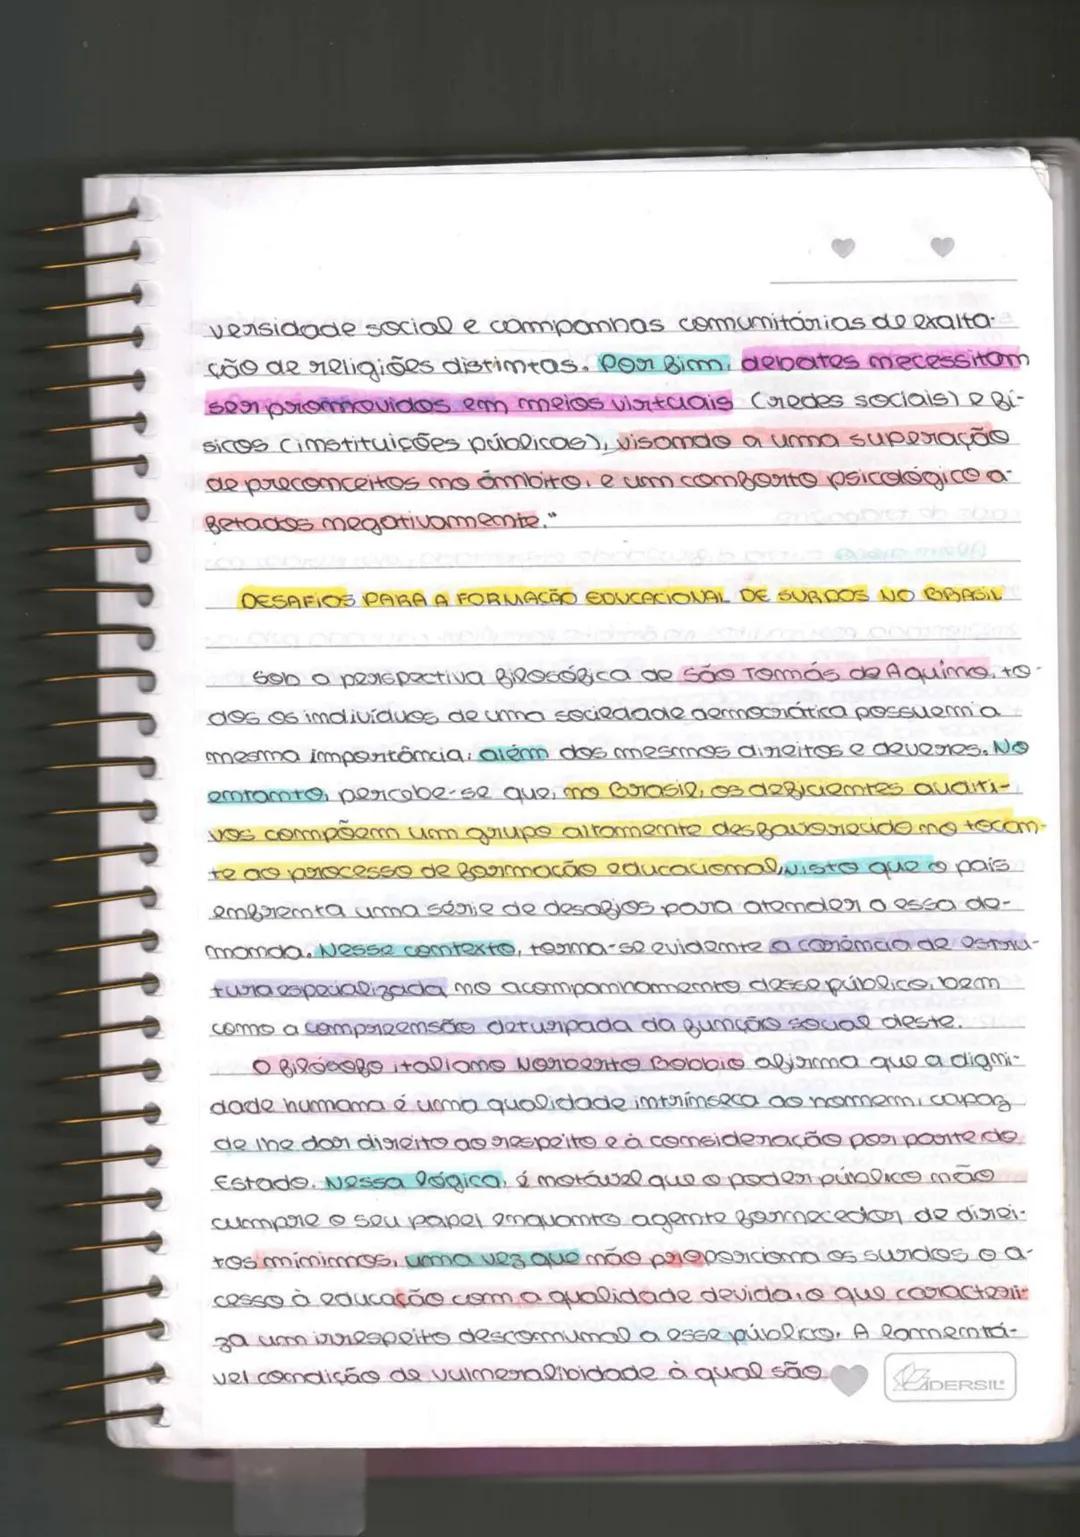 versidade social e campanhas comunitárias de exalta-
ção de religiões distintas. Por fim, debates necessitam
ser promovidos em meios virtuais (redes sociais) e fí-
sicos (instituições públicas), visando a uma superação
de preconceitos no âmbito, e um conforto psicológico a-
fetados negativamente."
DESAFIOS PARA A FORMAÇÃO EDUCACIONAL DE SURDOS NO BRASIL
Sob a perspectiva filosófica de São Tomás de Aquino, to-
dos os indivíduos de uma sociedade democrática possuem a
mesma importância, além dos mesmos direitos e deveres. No
entanto, percebe-se que, no Brasil, os deficientes auditi-
vos compõem um grupo altamente desfavorecido no tocan-
te ao processo de formação educacional, visto que o país
enfrenta uma série de desafios para atender a essa de-
manda. Nesse contexto, torna-se evidente a carência de estru-
tura especializada no acompanhamento desse público, bem
como a compreensão deturpada da função social deste.
O filósofo italiano Norberto Bobbio afirma que a digni-
dade humana é uma qualidade intrínseca ao homem, capaz
de lhe dar direito ao respeito e à consideração por parte do
Estado. Nessa lógica, é notável que o poder público não
cumpre o seu papel enquanto agente fornecedor de direi-
tos mínimos, uma vez que não proporciona os surdos o a-
cesso à educação com a qualidade devida, o que caracteri-
za um irrespeito descomunal a esse público. A lamentá-
vel condição de vulneralibidade à qual são
ADERSIL